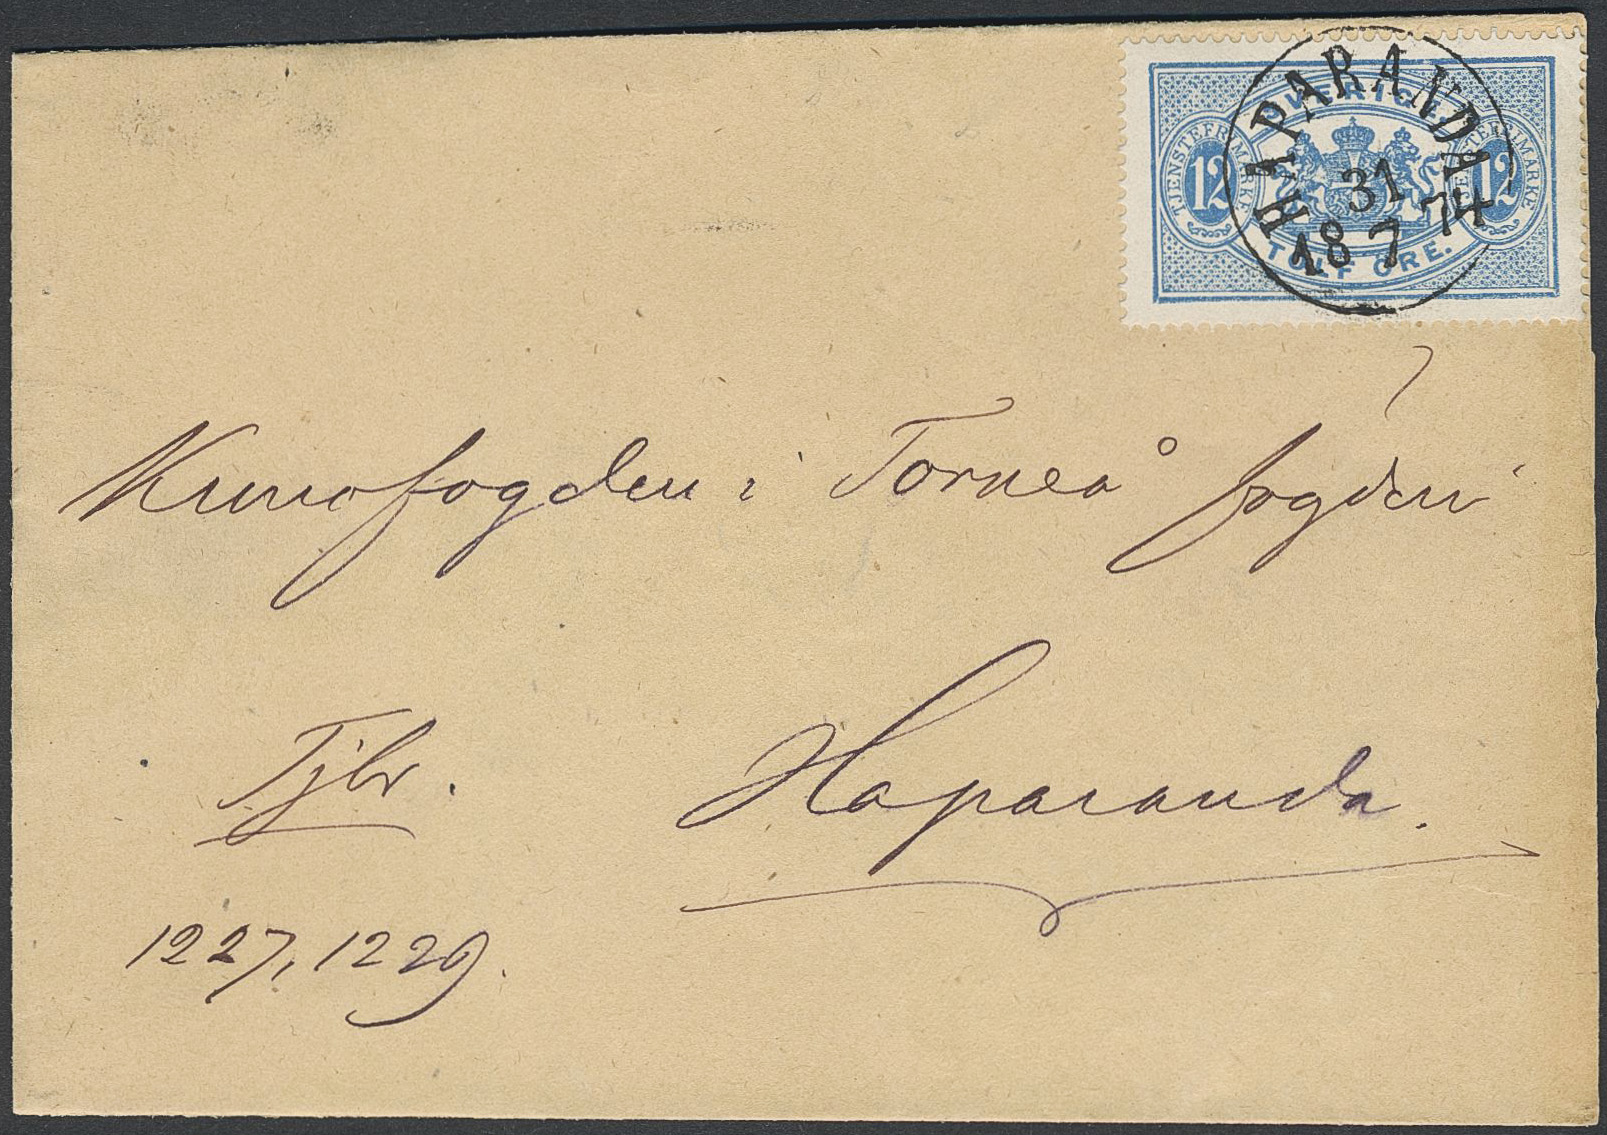 SVERIGE
TJENSTEFRIMARKE
12
12
TJENSTEFRIMARKE
TOLF ÖRE.
HAPARANDA
31
18 7 74
Kronofogden i Torneå fögderi
Haparanda.
Tjbr.
1227, 1229.